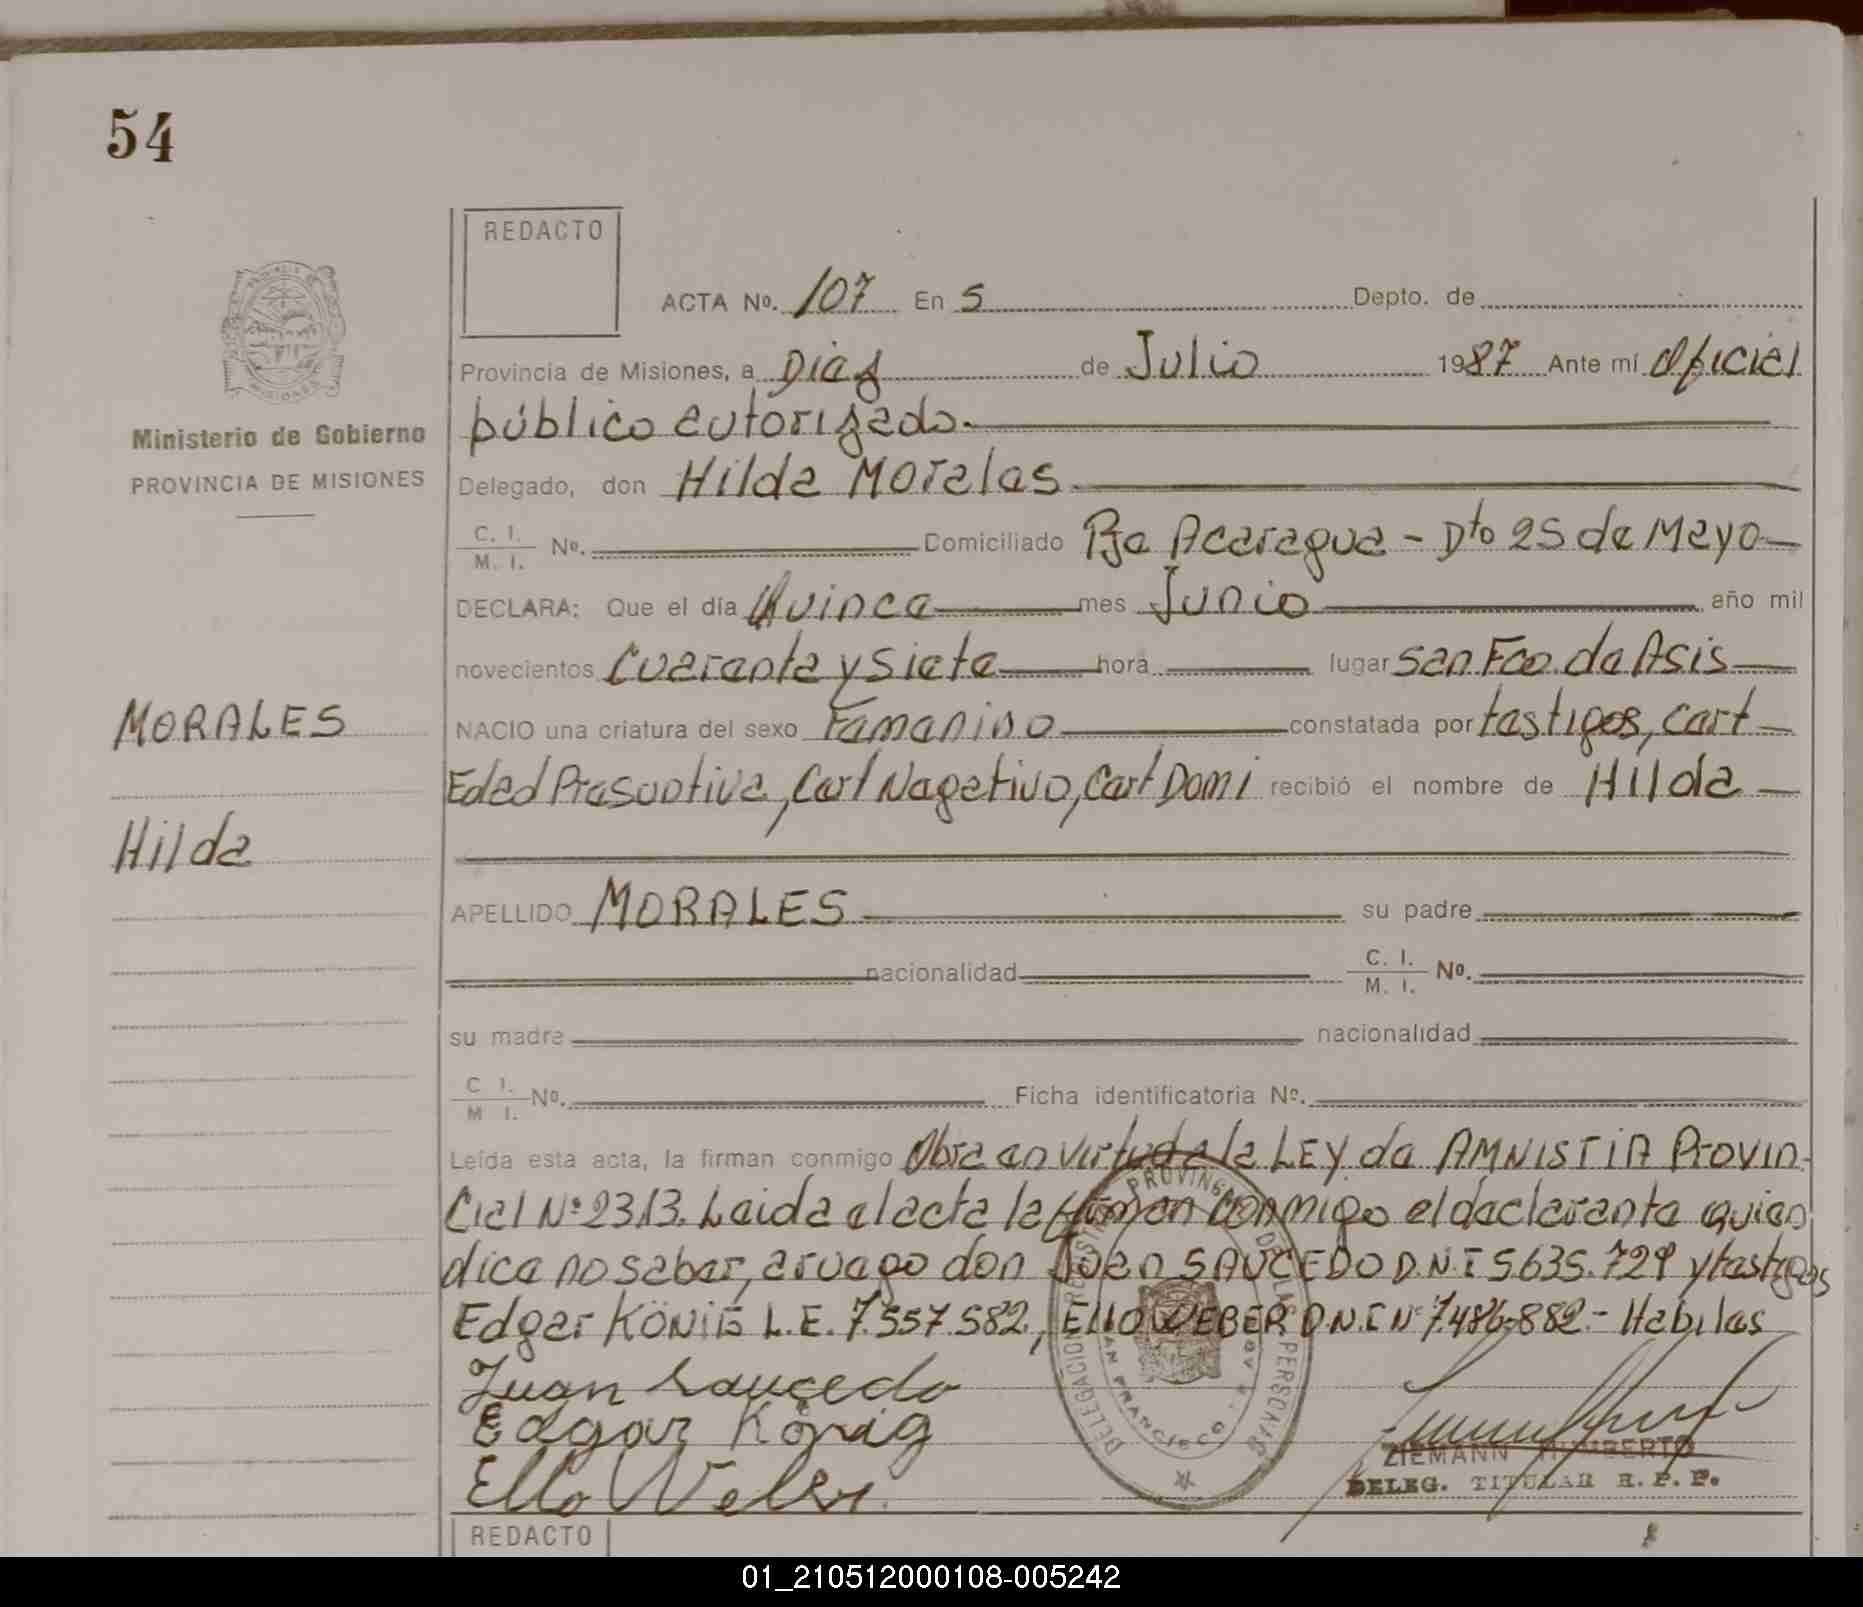 54
REDACTO
ACTA No. 107 En S Depto. de
Provincia de Misiones, a Diez de Julio 1987 Ante mí Oficial
público autorizado.
Ministerio de Gobierno
PROVINCIA DE MISIONES
Delegado, don Hilda Morales
C. I.
M. I. No. Domiciliado Pje Acaragua - Dto 25 de Mayo
DECLARA: Que el día Quince mes Junio año mil
novecientos Cuarenta y Siete hora lugar San Fco. de Asis
MORALES
NACIO una criatura del sexo Femenino constatada por testigos, Cert
Edad Presuntiva, Cert Negativo, Cert Domi recibió el nombre de Hilda
Hilda
APELLIDO MORALES su padre
nacionalidad C. I.
M. I. No.
su madre nacionalidad
C. I.
M. I. No. Ficha identificatoria No.
Leída esta acta, la firman conmigo Obra en virtud de la LEY de AMNISTIA Provin-
cial Nº 2313. Leida el acta la firman conmigo el declarante quien
dice no saber, a ruego don Juan SAUCEDO D.N.I 5.635.729 y testigos
Edgar KÖNIG L.E. 7.557.582, Ello WEBER D.N.I Nº 7.486.882.- Habiles
Juan Saucedo
Edgar König
Ello Weber.
ZIEMANN HUMBERTO
DELEG. TITULAR R. P. P.
REDACTO
01_210512000108-005242